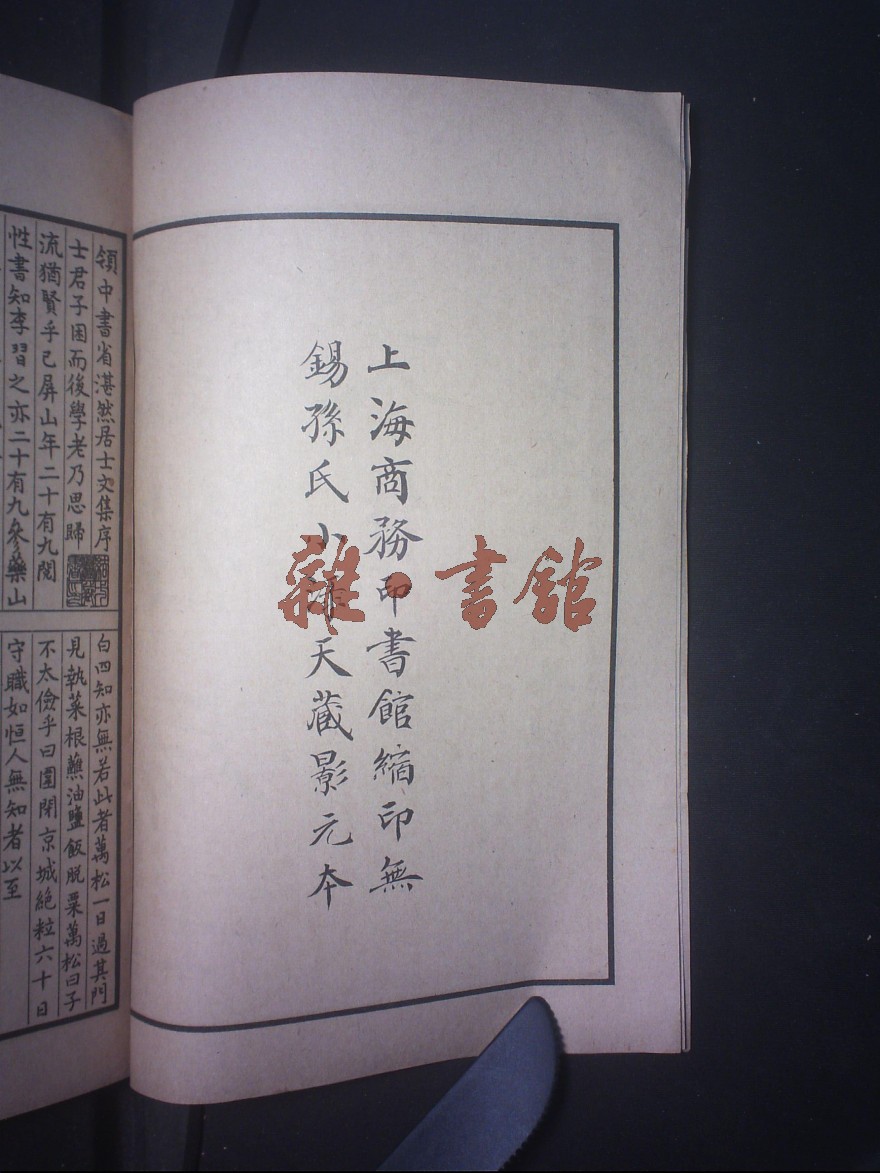 上海商務印書館縮印無
錫孫氏小綠天藏影元本
雜·書館
領中書省湛然居士文集序
士君子困而後學老乃思歸
流猶賢乎已屏山年二十有九閱
性書知李習之亦二十有九參藥山
白四知亦無若此者萬松一日過其門
見執菜根蘸油鹽飯脫粟萬松曰子
不太儉乎曰圍閉京城絕粒六十日
守職如恒人無知者以至